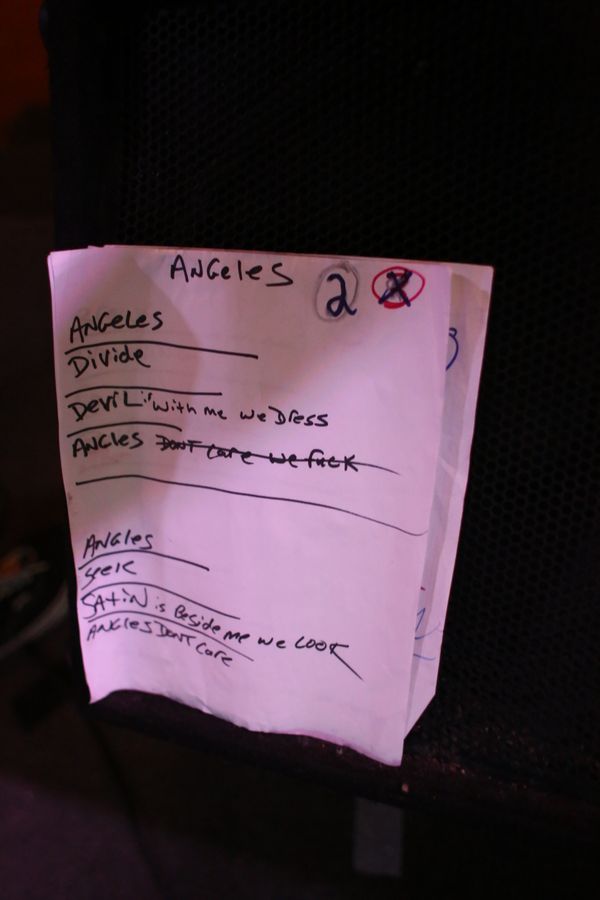 ANGELES 2 X
ANGELES
Divide
DEVIL "with me we Dress
ANGLES DON'T Care we fuck
ANGLES
seek
SATIN is Beside me we LOOK
ANGLES DONT Care